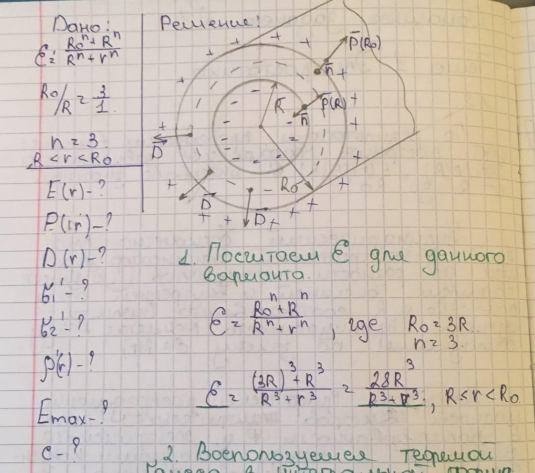 Дано:
ε = R₀ⁿ + Rⁿ / Rⁿ + rⁿ
R₀/R = 3/1
n = 3
R < r < R₀
E(r) - ?
P(r) - ?
D(r) - ?
σ₁' - ?
σ₂' - ?
ρ'(r) - ?
Emax - ?
c - ?
Решение:
P(R₀)
n
P(R)
R
n
R₀
D
D
D
1. Посчитаем ε для данного
варианта.
ε = R₀ⁿ + Rⁿ / Rⁿ + rⁿ , где R₀ = 3R
n = 3.
ε = (3R)³ + R³ / R³ + r³ = 28R³ / R³ + r³ , R ≤ r < R₀
2. Воспользуемся теоремой